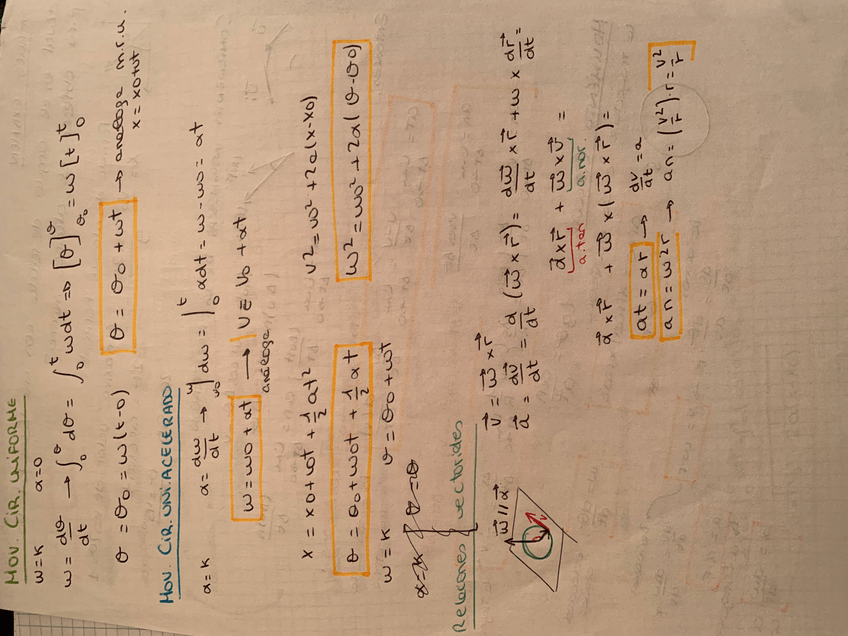 MOV. CIR. UNIFORME
ω=K α=0
ω = dθ/dt → ∫₀^θ dθ = ∫₀^t ωdt ⇒ [θ]^θ_θ₀ = ω[t]^t_0
θ = θ₀ = ω(t-0) θ = θ₀ + ωt → análoga m.r.u.
x = x0+vt
MOV. CIR. UNI. ACELERADO
α=K α = dω/dt → ∫^ω_ω0 dω = ∫^t_0 αdt = ω-ω0 = αt
ω = ω0 + αt → v = v0 + at
análoga
x = x0+v0t + 1/2 at² v² = v0² + 2a(x-x0)
θ = θ0 + ω0t + 1/2 αt ω² = ω0² + 2α(θ-θ0)
ω = K θ = θ0 + ωt
Relaciones vectoriales
ω⃗ // α⃗
v
v⃗ = ω⃗ × r⃗
a⃗ = dv⃗/dt = d/dt (ω⃗ × r⃗) = dω⃗/dt × r⃗ + ω × dr⃗/dt =
α⃗ × r⃗ + ω⃗ × v⃗ =
a.tan a.nor.
α⃗ × r⃗ + ω⃗ × (ω⃗ × r⃗) =
at = αr → dv/dt = a
an = ω²r → an = (v²/r)·r = v²/r